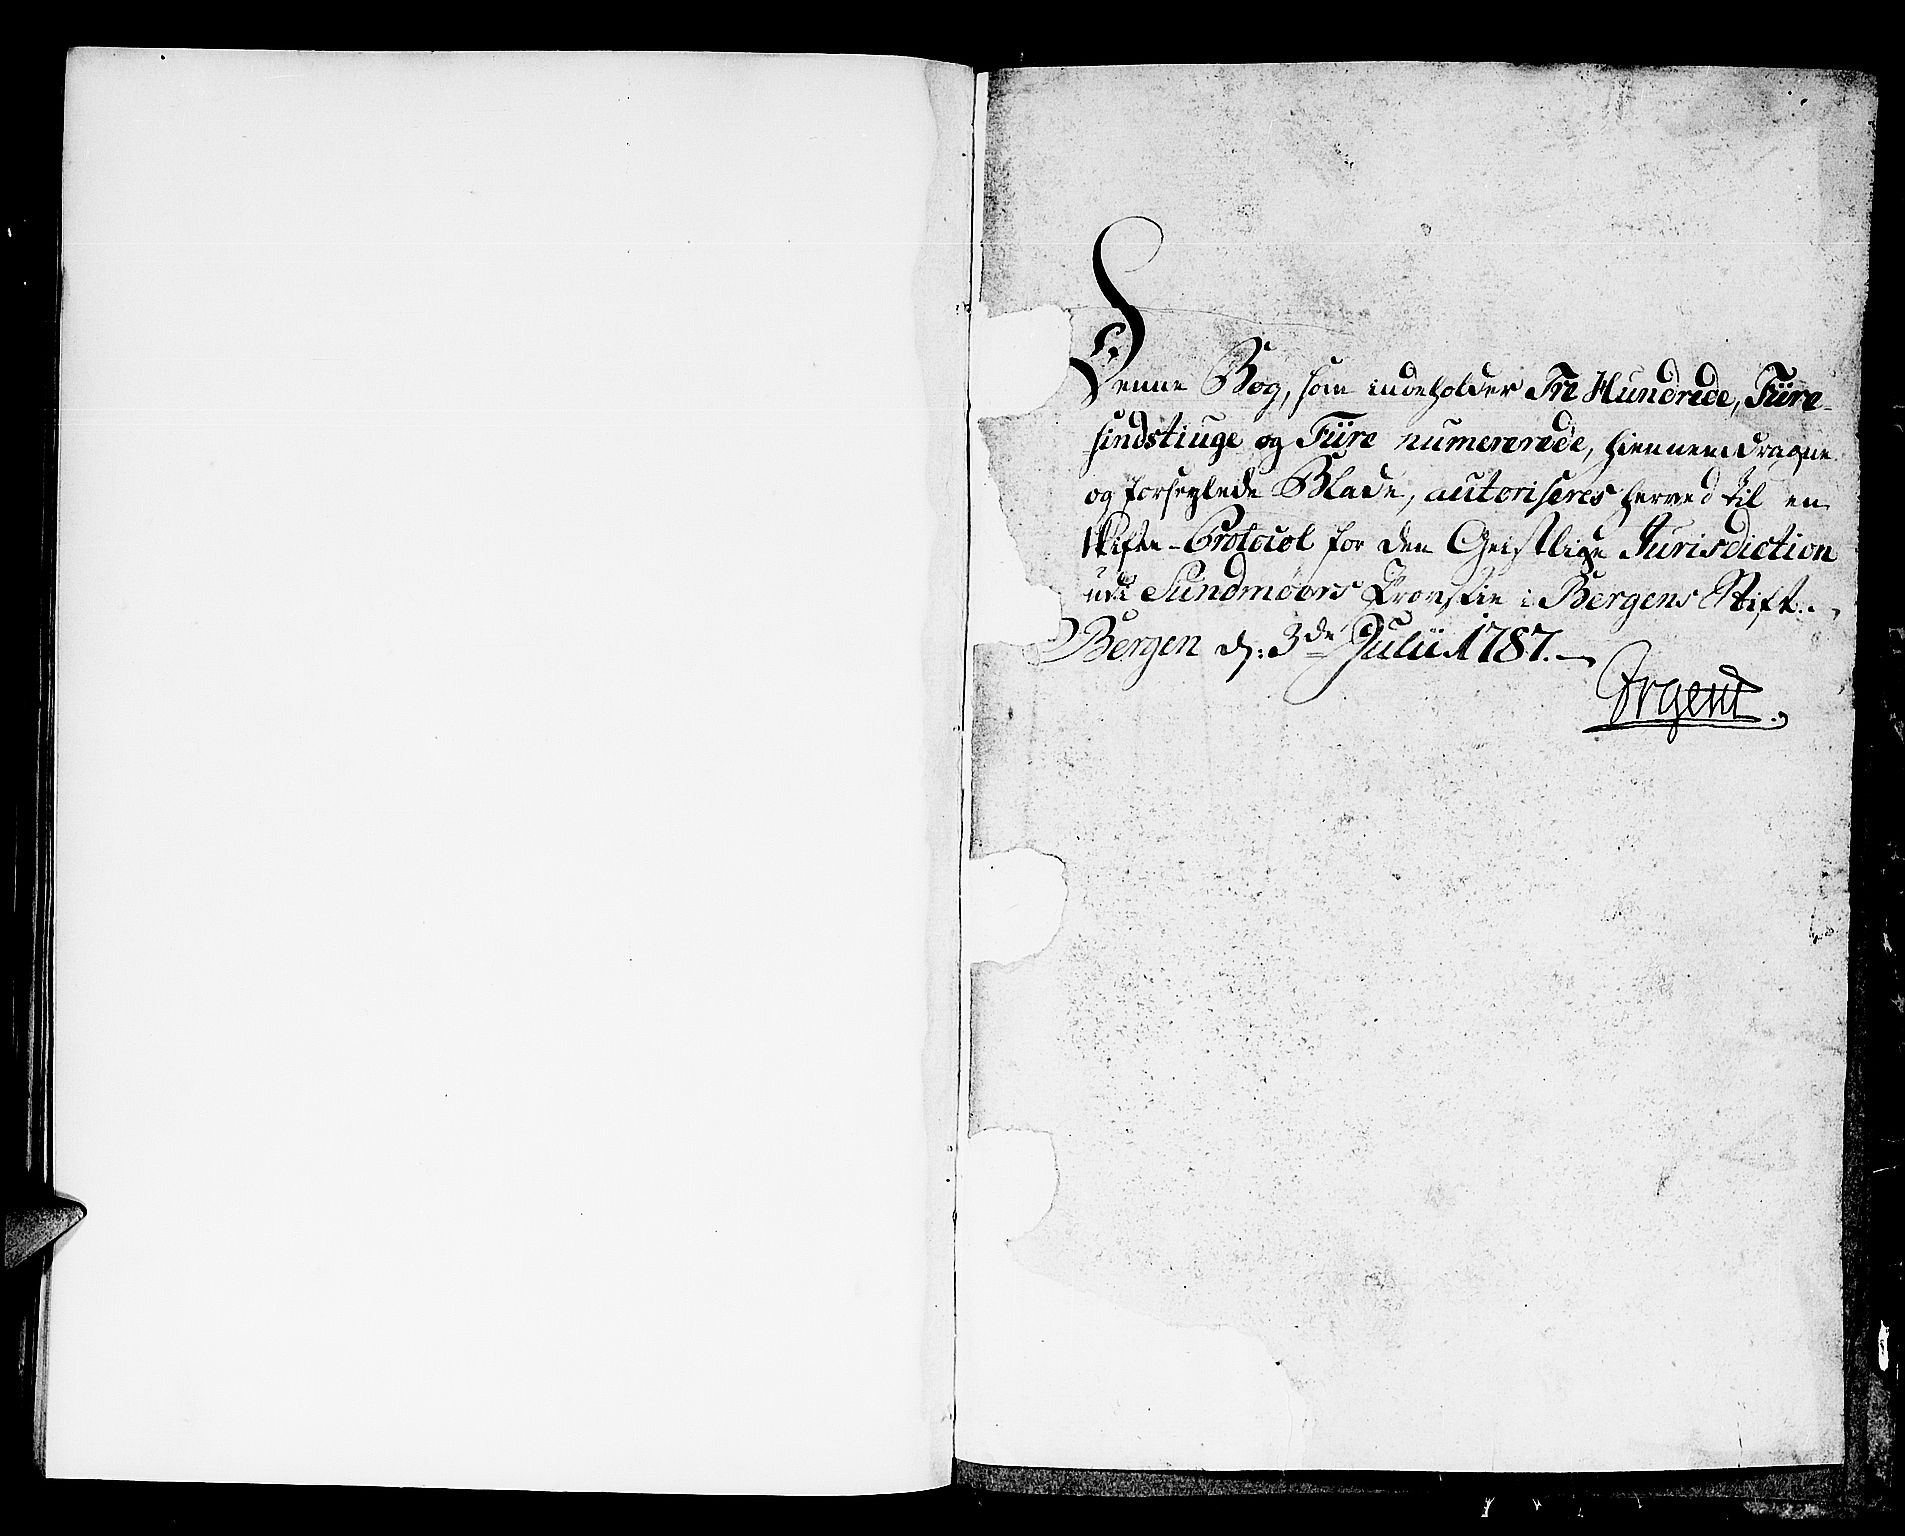 Denne Bog, som indeholder Tre Hundrede, Fiire-
sindstiuge og Fiire numererede, hiennemdragne
og forseglede Blade, autoriseres herved til en
Skifte-Protocol for den Geistlige Jurisdiction
udi Sundmøers Provstie i Bergens Stift.
Bergen d: 3de Julii 1787.